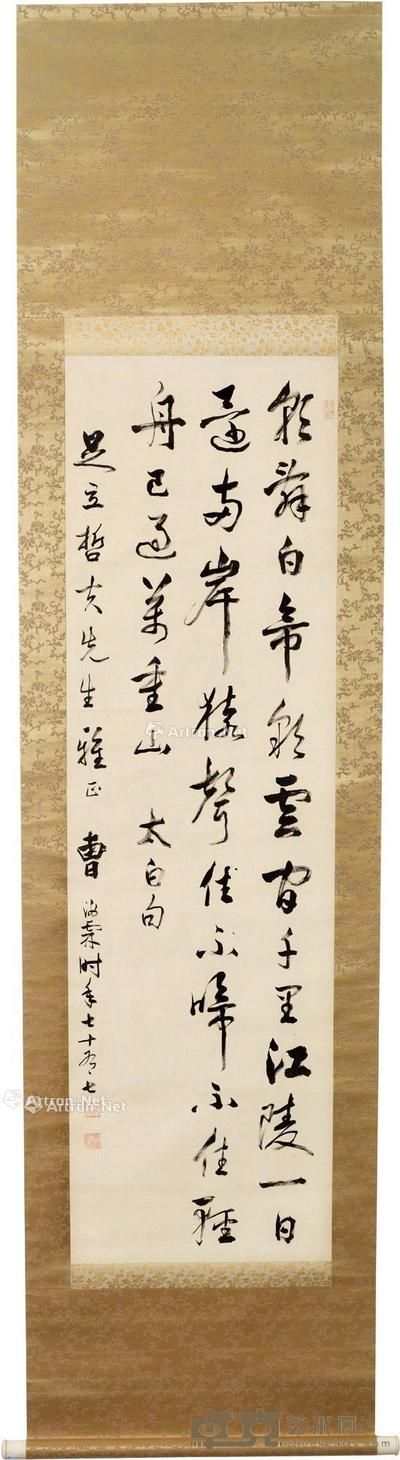 朝辭白帝彩雲間千里江陵一日
還兩岸猿聲住不啼不住輕
舟已過萬重山 太白句
足立哲夫先生雅正 曹汝霖时年七十有七
Artron.Net
Artron.Net
Artron.Net
艺术网